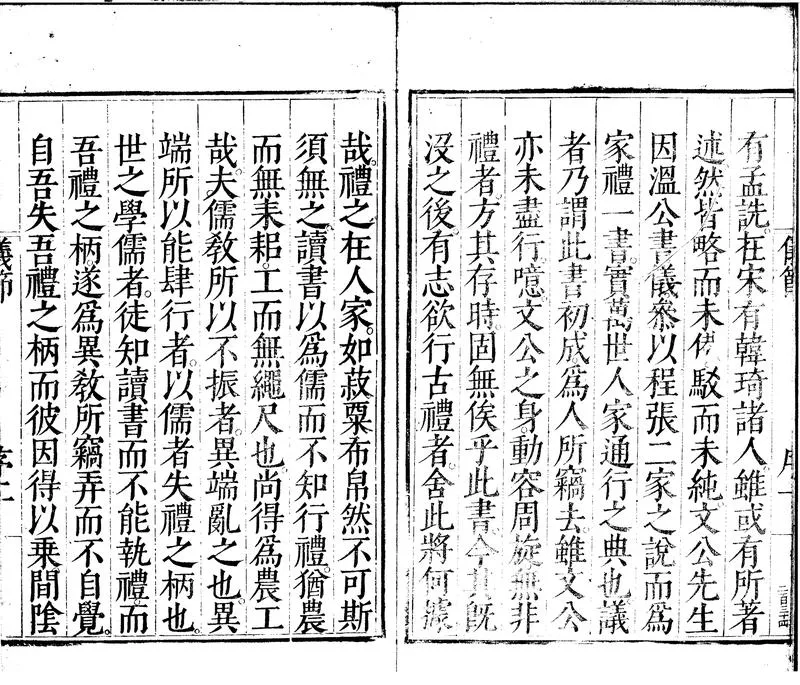 有孟詵。在宋有韓琦諸人。雖或有所著
述。然皆略而未備。駁而未純。文公先生
因溫公書儀。參以程張二家之說。而爲
家禮一書。實萬世人家通行之典也。議
者乃謂此書初成。爲人所竊去。雖文公
亦未盡行。噫。文公之身。動容周旋。無非
禮者。方其存時。固無俟乎此書。今其旣
沒之後。有志欲行古禮者。舍此將何據
哉。禮之在人家。如菽粟布帛然。不可斯
須無之。讀書以爲儒而不知行禮。猶農
而無耒耜。工而無繩尺也。尚得爲農工
哉。夫儒教所以不振者。異端亂之也。異
端所以能肆行者。以儒者失禮之柄也。
世之學儒者。徒知讀書而不能執禮。而
吾禮之柄遂爲異教所竊弄而不自覺。
自吾失吾禮之柄。而彼因得以乘間陰
儀節